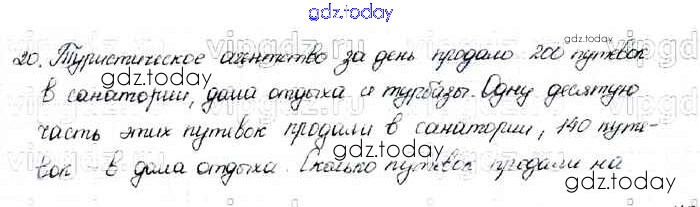 gdz.today
20. Туристическое агентство за день продало 200 путевок
gdz.today
в санатории, дома отдыха и турбазы. Одну десятую
часть этих путевок продали в санатории, 140 путе-
gdz.today
вок - в дома отдыха. Сколько путевок продали на